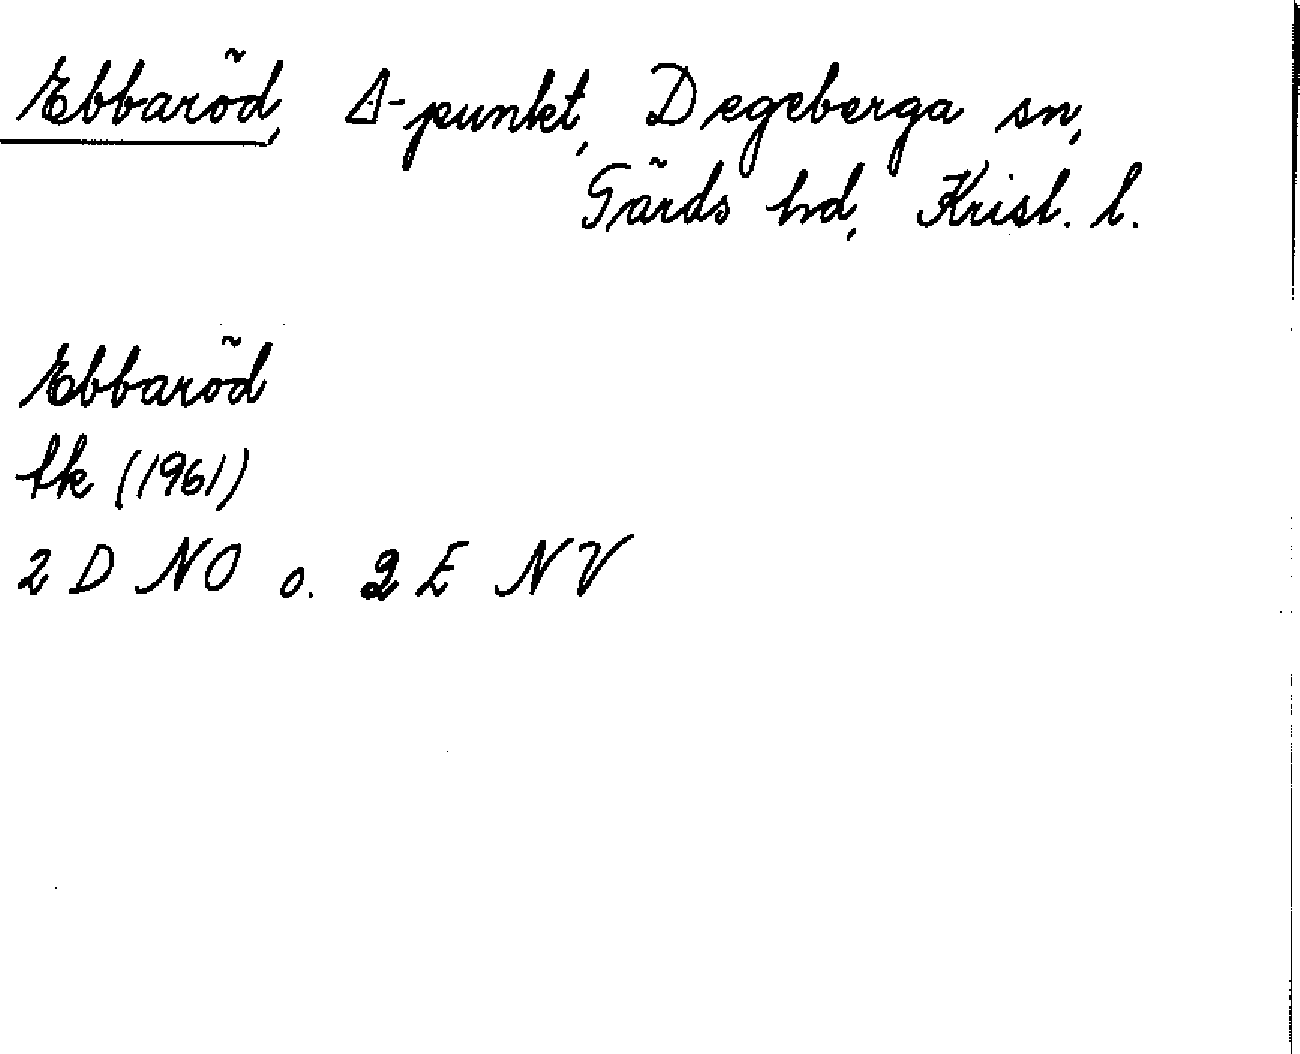 Ebbaröd, Δ-punkt, Degeberga sn,
Gärds hd, Krist. l.
Ebbaröd
tk (1961)
2 D NO o. 2 E NV